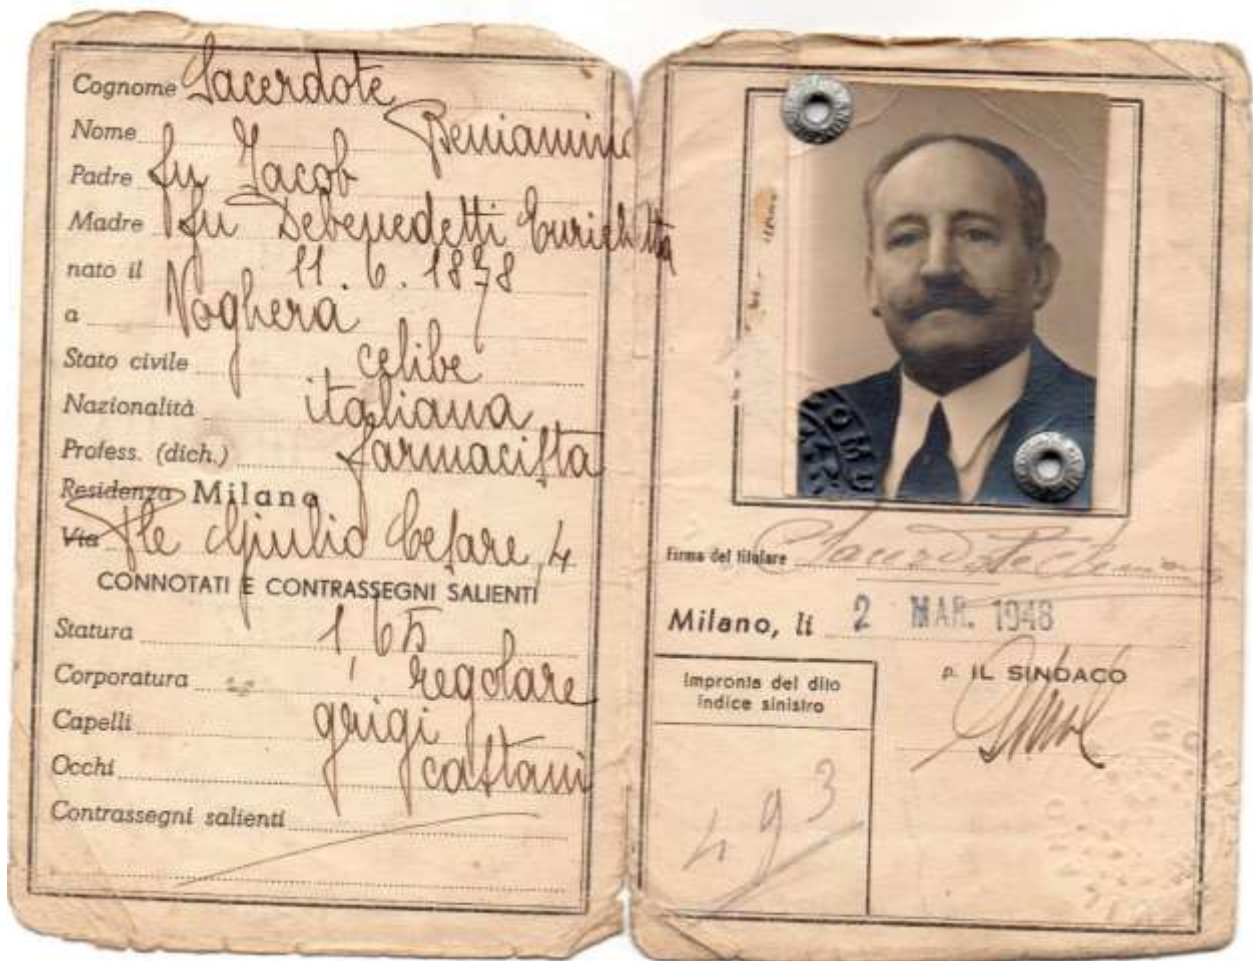 Cognome Sacerdote
Nome Beniamino
Padre fu Jacob
Madre fu Debenedetti Enrichetta
nato il 11.6.1878
a Voghera
Stato civile celibe
Nazionalità italiana
Profess. (dich.) farmacista
Residenza Milano
Via Ple Giulio Cesare, 4
CONNOTATI E CONTRASSEGNI SALIENTI
Statura 1,65
Corporatura regolare
Capelli grigi
Occhi castani
Contrassegni salienti
Firma del titolare Sacerdote
Milano, li 2 MAR. 1948
Impronta del dito
indice sinistro
p. IL SINDACO
493